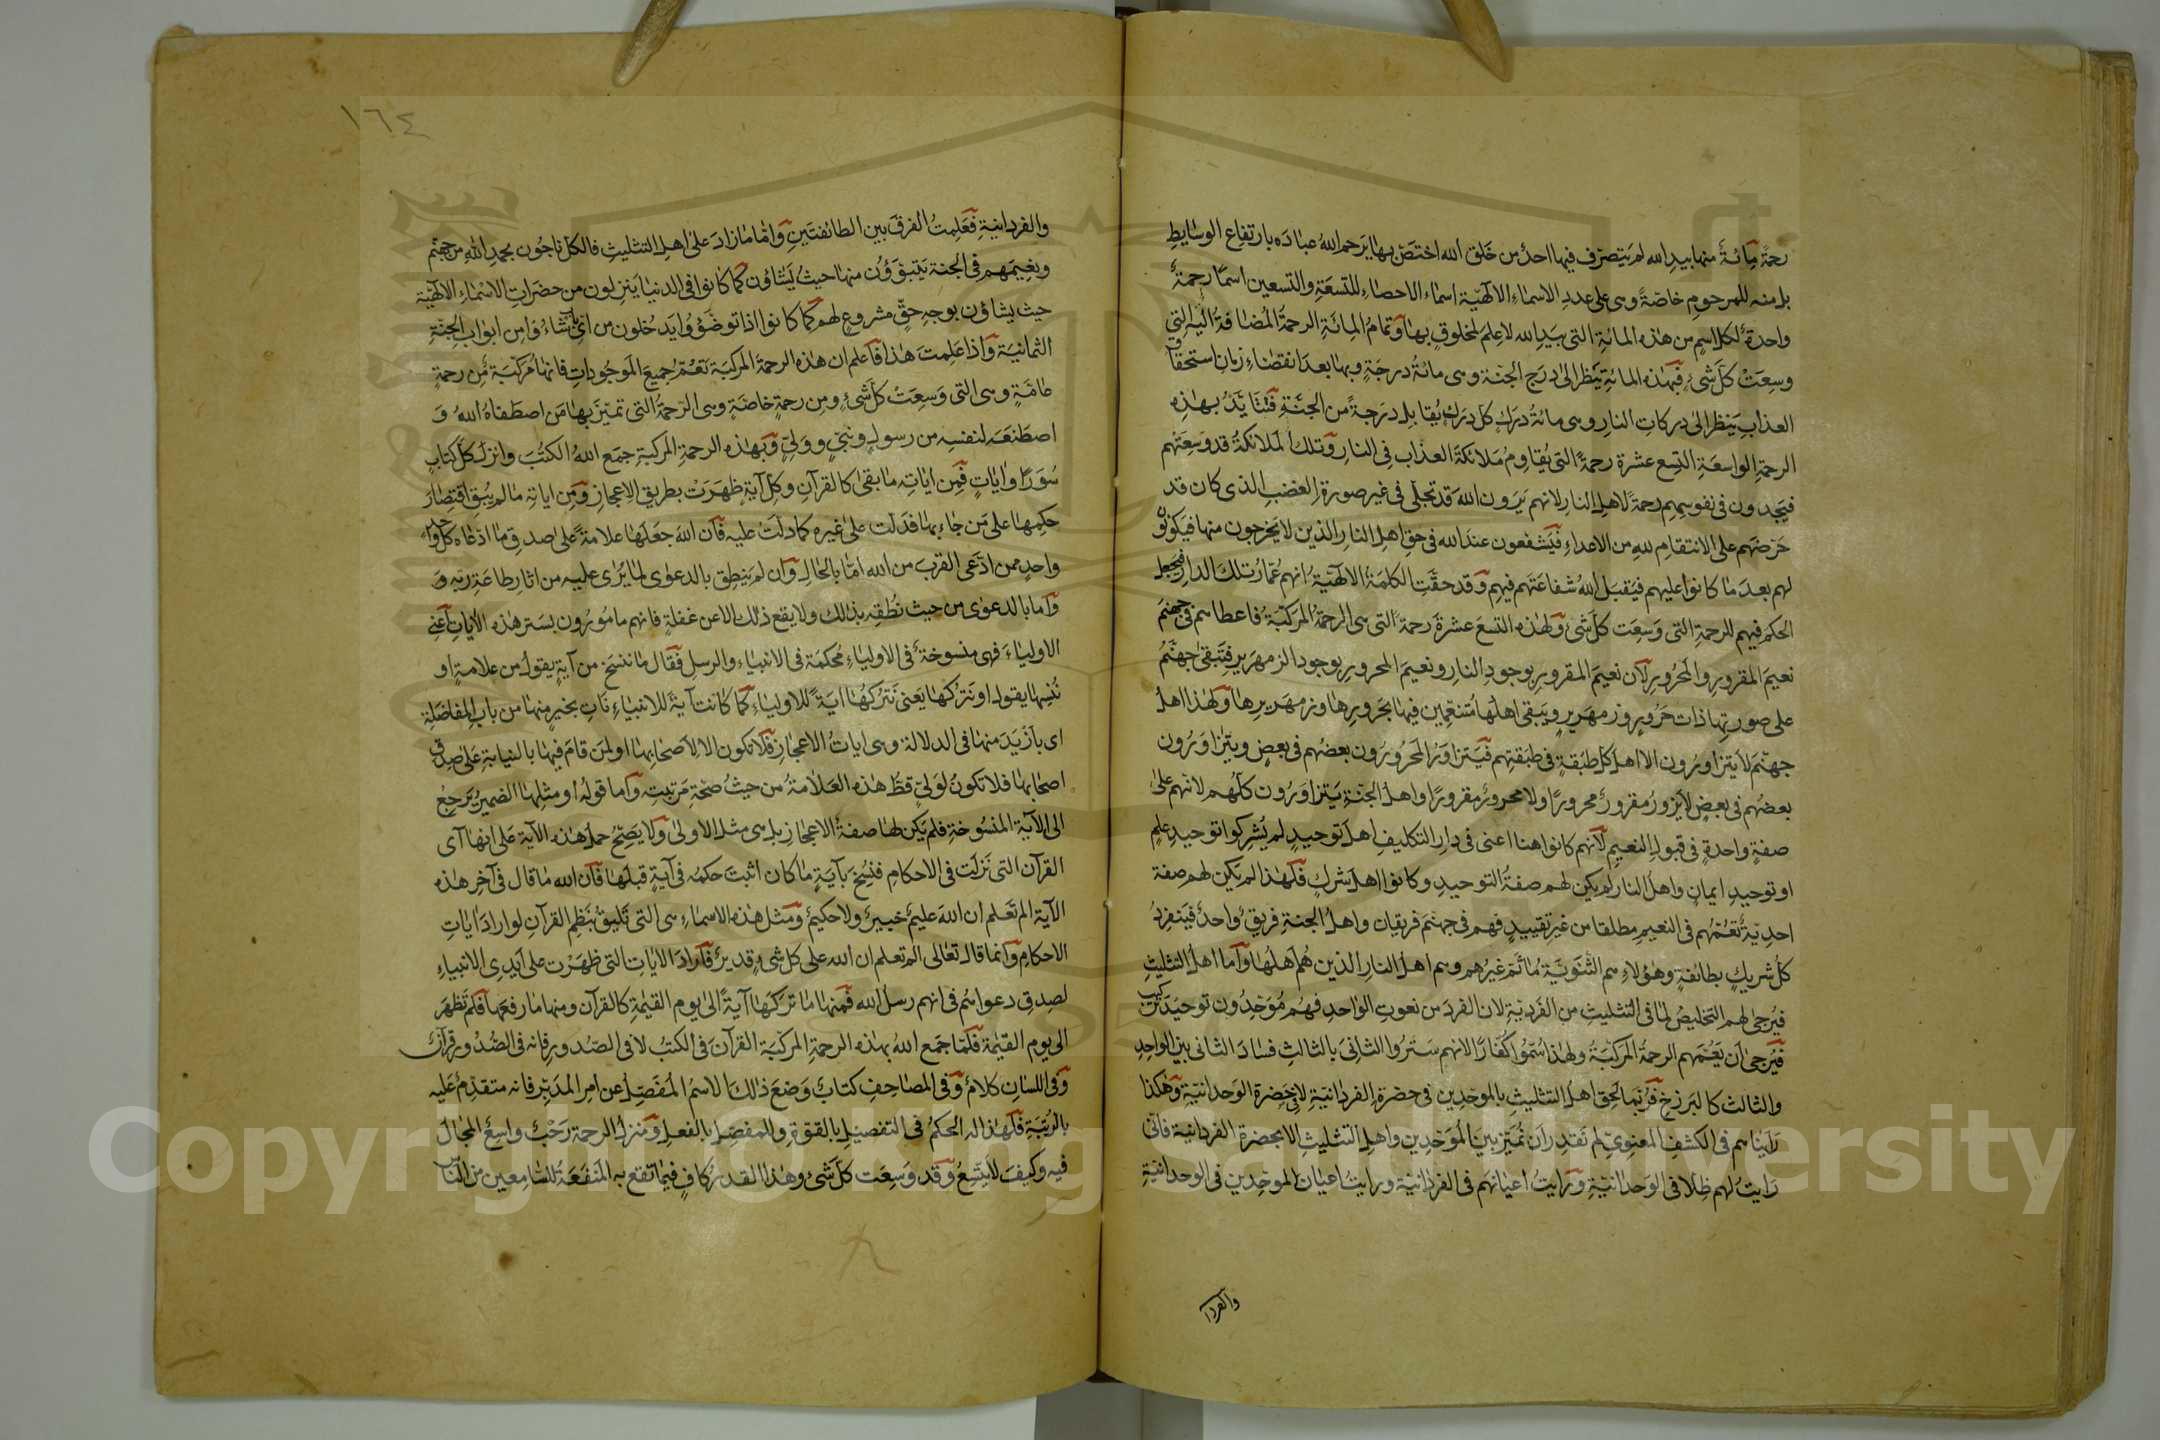 رحمةً مِائةٌ منها بيدِ الله لم يتصرّف فيها احدٌ من خَلق الله اختصّ بها يرحم اللهُ عبادَه بارتفاع الوسايطِ
بل منه للمرحومِ خاصّةً وهى على عددِ الاسماءِ الالهيّة اسماءِ الاحصاءِ للتسعَةِ والتسعين اسمًا رحمةٌ
واحدةٌ لكل اسمٍ من هذه المائةِ التى بيَدِ الله لا عِلمَ لمخلوقٍ بها وتمامُ المِائةِ الرحمةُ المُضافةُ اليهِ التى
وسِعَتْ كلّ شىءٍ فبهذه المائةِ ينظر الى دَرَجِ الجنّة وهى مائةُ درجَةٍ وبها بعدَ انقضاءِ زمان استحقاق
العذابِ ينظر الى دركاتِ النارِ وهى مائةُ دَرَكٍ كل درَكٍ يُقابل درَجةً من الجنّةِ فتتأيّدُ بهذه
الرحمةِ الواسعَةِ التِسع عشرة رحمةً التى يُقاوِم مَلائكةَ العذاب فى النارِ وتلك الملائكةُ قد وسِعَتهم
فيجدون فى نفوسِهم رحمةً لاهل النار لانهم يَرَون الله قد تجلّى فى غير صورةِ الغضبِ الذى كان قد
حرّضهم على الانتقامِ لله من الاعداءِ فيَشفعون عندَ الله فى حقِ اهل النار الذين لا يخرجون منها فيكونون
لهم بعدَ ما كانوا عليهم فيَقبل اللهُ شفاعَتَهم فيهم وقد حقّتِ الكلمَةُ الالهيّة انهم عُمّار تلك الدار فيجعل
الحكم فيهم للرحمةِ التى وَسِعَت كلّ شىءٍ ولهذه التسعَ عشرةَ رحمة التى هى الرحمةُ المركّبة فاعطاهم فى جهنم
نعيمَ المقرورِ والمحرورِ لان نعيمَ المقرورِ بوجودِ النار ونعيمَ المحرورِ بوجودِ الزمهرير فتبقى جهنّمُ
على صورتها ذات حَرُورٍ وزمهريرٍ ويبقى اهلُها متنعّمِين فيها بحَرورِها وزمهريرِها ولهذا اهلُ
جهنّمَ لا يتزاورُون الا اهل كل طبقةٍ فى طبقتِهم فيَتزاوَرُ المحرُورُون بعضُهم فى بعضٍ ويتزاوَرُون المقرورون
بعضُهم فى بعضٍ لا يزورُ مقرورٌ محرورًا ولا محرورٌ مقرورًا واهلُ الجنّةِ يتزاوَرُون كلّهم لانهم على
صفةٍ واحدةٍ فى قبولِ النعيم لانهم كانوا هنا اعنى فى دار التكليفِ اهلَ توحيدٍ لم يُشركوا توحيدِ علمٍ
او توحيدِ ايمانٍ واهلُ النار لم يكن لهم صفةُ التوحيدِ وكانوا اهلَ شركٍ فلهذا لم يكن لهم صفة
احديّةٌ تعُمّهُم فى النعيمِ مطلقًا من غيرِ تقييدٍ فهم فى جهنمَ فريقان واهلُ الجنةِ فريقٌ واحدٌ فينفردُ
كلُ شريكٍ بطائفةٍ وهؤلاءِ هم الثنويّة ما ثَمّ غيرُهم وهم اهلُ النار الذين هُم اهلها وامّا اهلُ التثليثِ
فيُرجى لهم التخليصُ لما فى التثليثِ من الفرديّةِ لان الفردَ من نعوتِ الواحدِ فهُم مُوَحّدُون توحيدَ تركيب
فيُرجى أن يَعُمّهم الرحمةُ المركّبَةُ ولهذا سُمّوا كُفّارًا لانهم سَترُوا الثانىَ بالثالثِ فصارَ الثانى بين الواحِدِ
والثالث كالبرزخِ فرُبّما لَحِق اهلُ التثليثِ بالموحّدِين فى حضرةِ الفردانيّةِ لا فى حَضرةِ الوَحدانيّةِ وهكذا
رَايناهم فى الكشفِ المعنوىّ لم نقدِر ان نُميّز بين المُوَحّدِين واهلِ التثليثِ الا بحضرة الفردانيّة فانى
رَايتُ لهم ظِلّا فى الوَحدانيّةِ ورَايتُ اعيانَهم فى الفردانيّة ورايتُ اعيانَ الموحّدِين فى الوحدانيّةِ
والفردا
١٦٤
والفردانيّةِ فعَلِمتُ الفرقَ بين الطائفتَينِ وامّا ما زادَ على اهلِ التثليثِ فالكل ناجُون بحمدِ الله من جهنّم
ونعيمهم فى الجنة يتبوّؤُن منها حيثُ يشاؤن كما كانوا فى الدنيا ينزلون من حضَراتِ الاسماءِ الالهيّة
حيث يشاؤن بوجهِ حقٍّ مشروعٍ لهم كما كانوا اذا توضّؤُا يدخُلون من اىّ بابٍ شاءُوا من ابوابِ الجنّة
الثمانية واذا علِمتَ هذا فاعلم ان هذه الرحمةَ المركّبةَ تعُمّ جميعَ الموجُوداتِ فانها مُركّبَة من رحمةٍ
عامّةٍ وهى التى وَسِعَتْ كلّ شىءٍ ومن رحمةٍ خاصّةٍ وهى الرّحمةُ التى تميّزَ بها مَن اصطفاهُ اللهُ و
اصطنَعَه لنفسِه من رسولٍ ونبىٍّ وولىٍّ وبهذه الرحمةِ المركّبةِ جمَع اللهُ الكتُبَ وانزل كلّ كتابٍ
سُوَرًا وايَاتٍ فمِن اياتِه ما بقى كالقرآنِ وكلّ آيةٍ ظهَرَتْ بطريقِ الاعجازِ ومِن اياتِه ما لم يبق اقتصارَ
حكمِها على مَن جاءِ بها فدلّت على غيرِه كما دلّت عليه فانّ الله جعلها علامةً على صدقِ ما ادّعاه كلُ
واحدٍ ممن ادّعى القربَ من الله امّا بالحَالِ وان لم ينطِق بالدعوى لما يُرى عليه من اثارِ طاعةِ ربّه و
وامّا بالدعوى من حيث نُطقِه بذلك ولا يقع ذلك الا عن غفلةٍ فانهم مامُورُون بسَترِ هذه الاياتِ اعنى
الاولياءَ فهى منسوخةٌ فى الاولياءِ مُحكمَة فى الانبياءِ والرسلِ فقال ما ننسَخ من آيةٍ يقولُ من علامةٍ او
نُنسِها يقول او نتركها يعنى نَتركُها ايَةً للاولياءِ كما كانت آيةً للانبياءِ نَاتِ بخيرٍ منها من بابِ المفاضَلةِ
اى بازيَدَ منها فى الدلالة وهى اياتُ الاعجازِ فلا تكون الا لاصحابِها او لمن قامَ فيها بالنيابةِ على صدقِ
اصحابِها فلا تكونُ لولىٍّ قطّ هذه العَلامةُ من حيثُ صحّةِ مرتبته وامّا قولُه او مثلِها الضميرُ يرجعُ
الى الآيةِ المنسُوخةِ فلم يكن لها صفةُ الاعجازِ بل هى مثل الاولى ولا يصِحّ حملُ هذه الآية على انها آى
القرآنِ التى نزلت فى الاحكامِ فنُسِخَ بآيةٍ ما كان اثبتَ حكمُه فى آيةٍ قبلَها فان الله ما قال فى آخر هذه
الآيةِ الم تعلم ان الله عليمٌ خبيرٌ ولا حكيمٌ ومثل هذه الاسماءِ هى التى تليقُ بنَظمِ القرآنِ لو اراد اياتِ
الاحكامِ وانما قال تعالى الم تعلم ان الله على كل شىءٍ قديرٌ فارادَ الاياتِ التى ظهَرَت على ايدِى الانبياءِ
لصِدقِ دعواهُم فى انهم رسلُ الله فمنها ما تركها آيةً الى يوم القيمةِ كالقرآن ومنها ما رفعَها فلم تظهر
الى يوم القيمةِ فلمّا جمَع اللهُ بهذه الرحمةِ المركّبَة القرآنَ فى الكتب لا فى الصّدورِ فانه فى الصّدُورِ قرآنٌ
وفى اللسانِ كلامٌ وفى المصاحِفِ كتابٌ وَضعَ ذلك الاسمُ المُفَصّلُ عن امرِ المُدبّرِ فانه متقدّمٌ عليه
بالرُتبَةِ فلهذا له الحكمُ فى التفصيلِ بالقوّةِ وللمفصّلِ بالفعلِ ومنزلُ الرحمةِ رَحْبٌ واسِعُ المجَال
فيه وكيفَ لا يتّسِعُ وقد وَسِعَت كلّ شىءٍ وهذا القدرُ كافٍ فيما تقع به المَنفعَة للسّامعِين من النّاس
Copyright © King Saud University